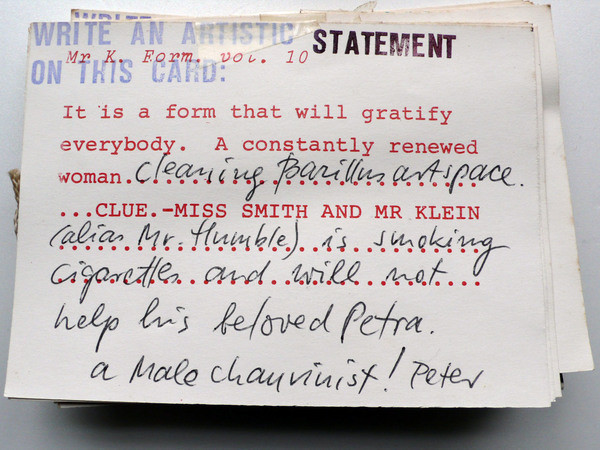 WRITE AN ARTISTIC STATEMENT
Mr K. Form. vol. 10
ON THIS CARD:
It is a form that will gratify
everybody. A constantly renewed
woman. Cleaning Barillus artspace.
...CLUE.-MISS SMITH AND MR KLEIN
(alias Mr. Humble) is smoking
cigarettes and will not
help his beloved Petra.
a Male chauvinist! Peter